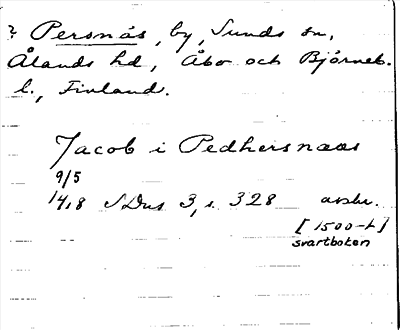 ? Persnäs, by, Sunds sn,
Ålands hd, Åbo och Björneb.
l., Finland.
Jacob i Pedhersnæs
9/5
1418 SDns 3, s. 328 avskr.
[1500-t]
svartboken